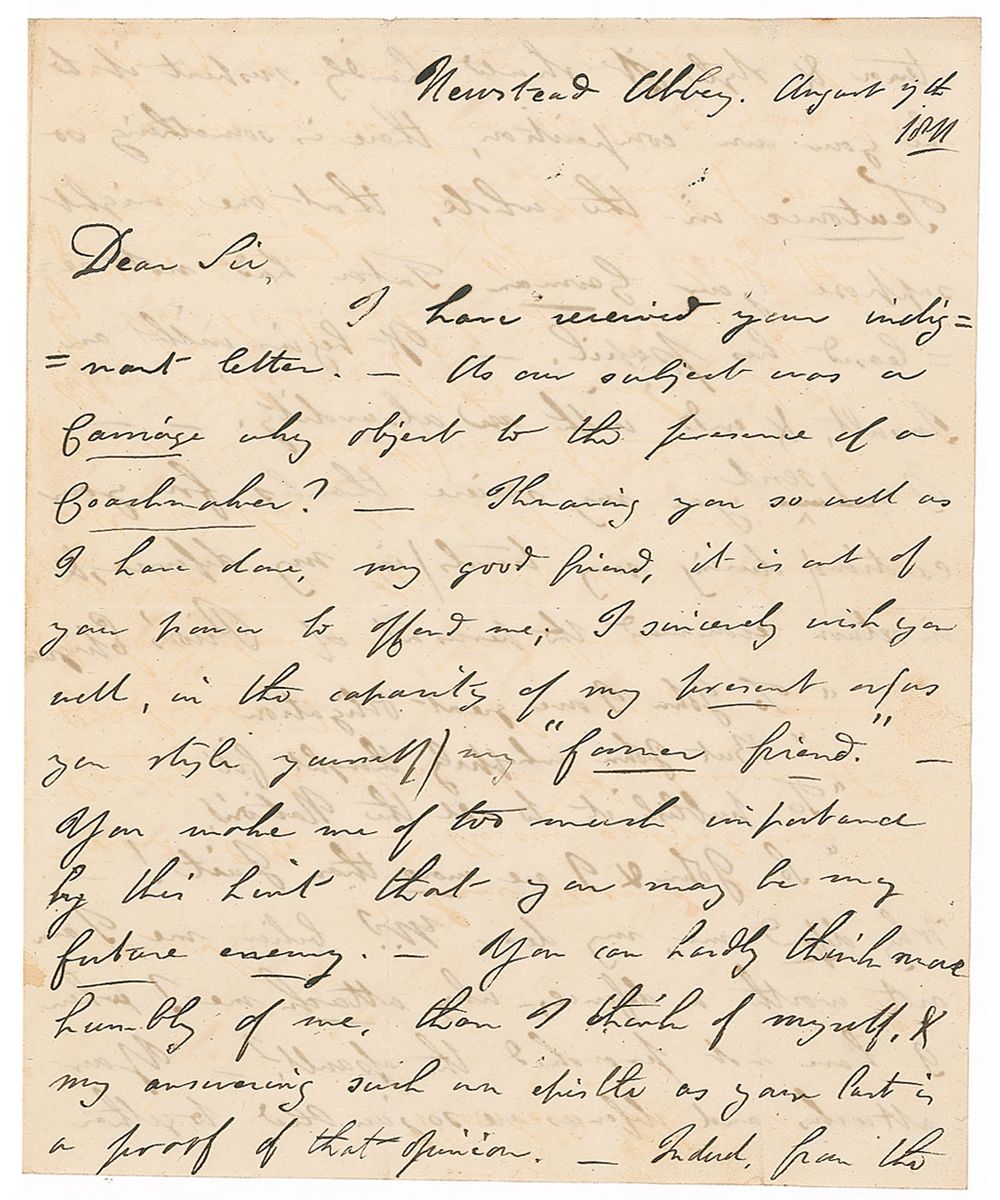 Newstead Abbey. August
1811
Dear Sir,
I have received your indig=
=nant letter. — As our subject was a
Carriage why object to the presence of a
Coachmaker? — Knowing you so well as
I have done, my good friend, it is out of
your power to offend me; I sincerely wish you
well, in the capacity of my present or (as
you style yourself) my "former friend." —
You make me of too much importance
by this hint that you may be my
future enemy. — You can hardly think more
humbly of me, than I think of myself, &
my answering such an epistle as your last is
a proof of that opinion. — Indeed, from the